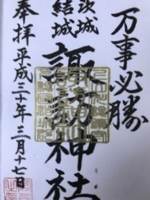 万事必勝
茨城
結城
諏訪神社
奉拝平成三十年三月十七日